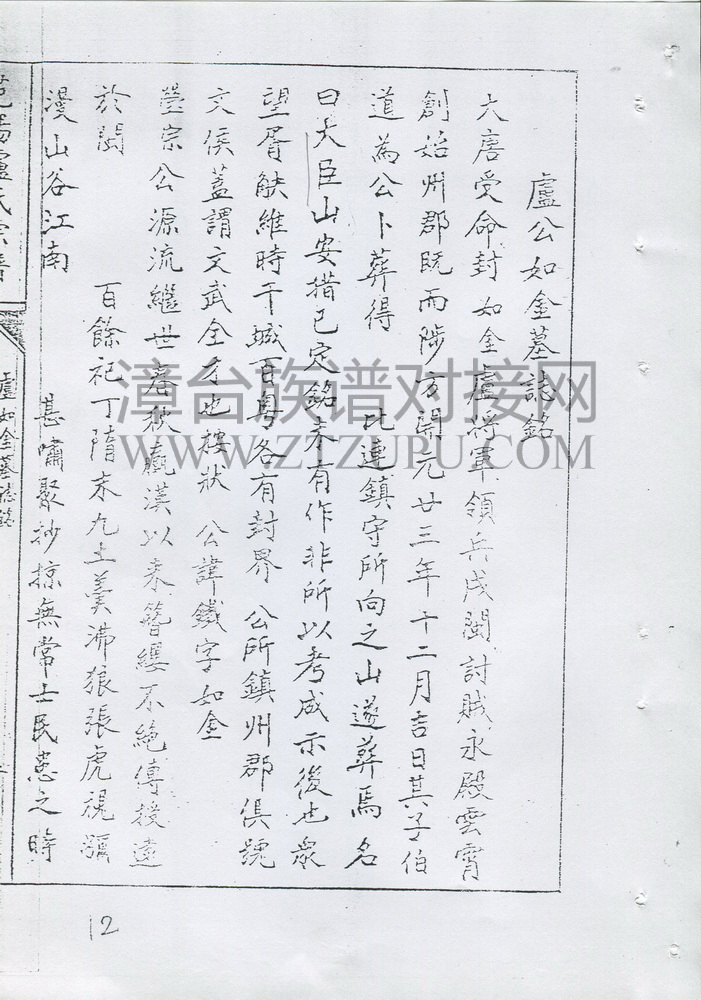 盧公如金墓誌銘
大唐受命封如金盧將軍領兵戍閩討賊永殿雲霄
創始州郡既而陟方開元廿三年十二月吉日其子伯
道為公卜葬得 比連鎮守所向之山遂葬焉名
曰大臣山安措已定銘未有作非所以考成示後也眾
望胥觖維時干城百粵各有封界 公所鎮州郡俱號
文侯蓋謂文武全才也樓狀 公諱鐵字如金
瑩宗公源流繼世春秋嬴漢以來簪纓不絕傳接遠
於閩 百餘祀丁隋末九土羹沸狼張虎視
漫山谷江南 甚嘯聚抄掠無常士民患之時
范陽盧氏宗譜
盧如金墓誌銘
12
漳台族谱对接网
WWW.ZTZUPU.COM